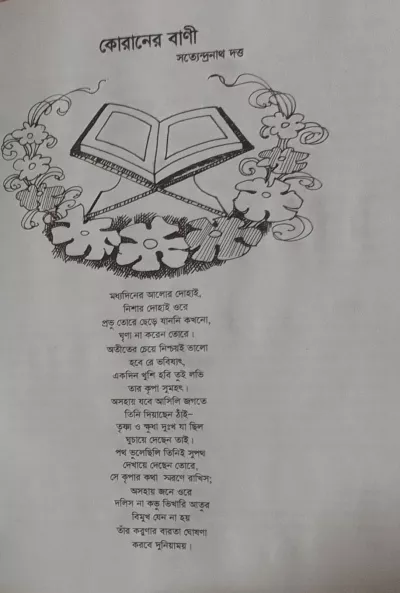 কোরানের বাণী
সত্যেন্দ্রনাথ দত্ত
মধ্যদিনের আলোর দোহাই,
নিশার দোহাই ওরে
প্রভু তোরে ছেড়ে যাননি কখনো,
ঘৃণা না করেন তোরে।
অতীতের চেয়ে নিশ্চয়ই ভালো
হবে রে ভবিষ্যৎ,
একদিন খুশি হবি তুই লভি
তার কৃপা সুমহৎ।
অসহায় যবে আসিলি জগতে
তিনি দিয়াছেন ঠাঁই–
তৃষ্ণা ও ক্ষুধা দুঃখ যা ছিল
ঘুচায়ে দেছেন তাই।
পথ ভুলেছিলি তিনিই সুপথ
দেখায়ে দেছেন তোরে,
সে কৃপার কথা স্মরণে রাখিস;
অসহায় জনে ওরে
দলিস না কভু ভিখারি আতুর
বিমুখ যেন না হয়
তাঁর করুণার বারতা ঘোষণা
করবে দুনিয়াময়।